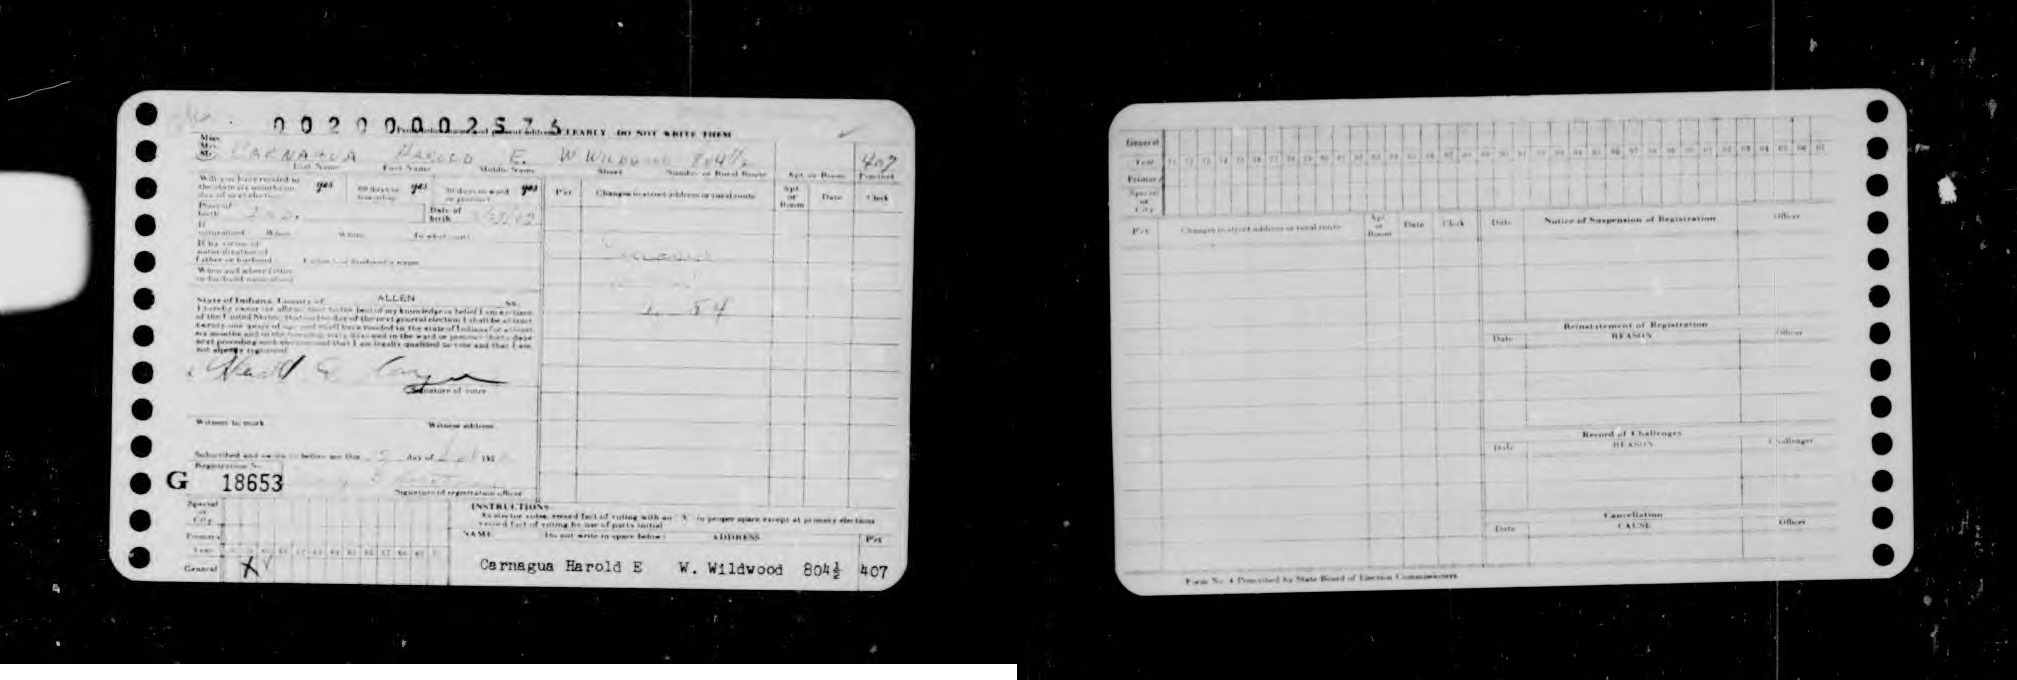 00200002576
CLEARLY DO NOT WRITE THEM
Miss
Mrs.
Mr. CARNAGUA HAROLD E. W WILDWOOD 804½ 407
Last Name First Name Middle Name Street Number or Rural Route Apt. or Room Precinct
Will you have resided in
the state six months on yes 60 days in yes 30 days in ward yes
day of next election township or precinct
Pct Changes in street address or rural route Apt or Room Date Clerk
Place of birth Ind. Date of birth
If naturalized When Where To what court
If by virtue of
naturalization of
Father or husband Father's or husband's name
When and where father
or husband naturalized
54
State of Indiana, County of ALLEN SS.
I hereby swear (or affirm) that to the best of my knowledge or belief I am a citizen
of the United States, that on the day of the next general election I shall be at least
twenty-one years of age and shall have resided in the state of Indiana for at least
six months and in the township sixty days and in the ward or precinct thirty days
next preceding such election and that I am legally qualified to vote and that I am
not already registered
Signature of voter
Witness to mark Witness address
Subscribed and sworn to before me this 5 day of 195
Registration No.
G 18653
Signature of registration officer
Special or City
Primary
Year
General X
INSTRUCTIONS
As elector votes, record fact of voting with an "X" in proper space except at primary elections
record fact of voting by use of party initial
NAME (Do not write in space below) ADDRESS Pct
Carnagua Harold E W. Wildwood 804½ 407
General
Year
Primary
Special or City
Pct Changes in street address or rural route Apt or Room Date Clerk
Date Notice of Suspension of Registration Officer
Reinstatement of Registration
Date REASON Officer
Record of Challenges
Date REASON Challenger
Cancellation
Date CAUSE Officer
Form No. 4 Prescribed by State Board of Election Commissioners